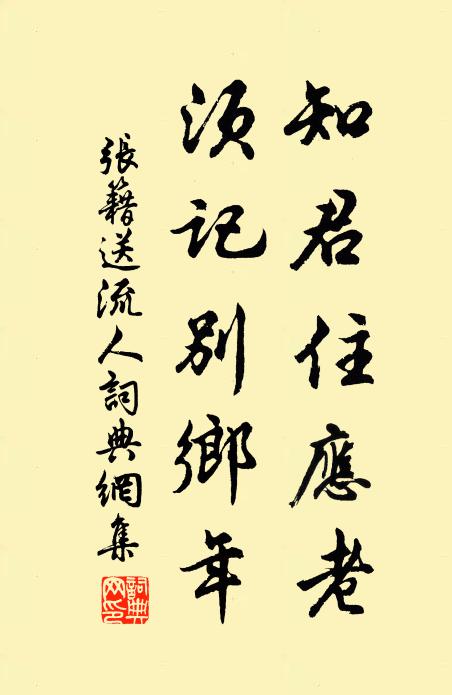 知君住應老
須記別鄉年
張籍送流人詞典網集
詞典網印